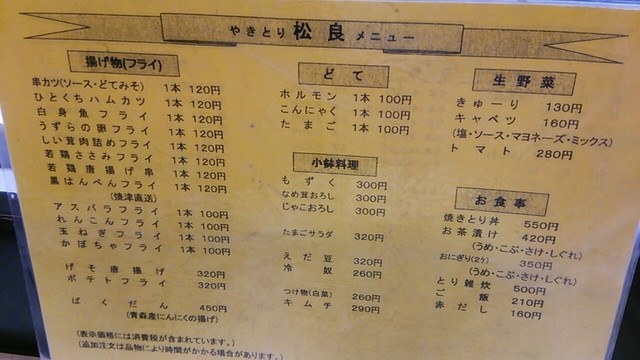 やきとり 松良 メニュー
揚げ物(フライ)
串カツ(ソース・どてみそ) 1本 120円
ひとくちハムカツ 1本 120円
白身魚フライ 1本 120円
うずらの卵フライ 1本 120円
しい茸肉詰めフライ 1本 120円
若鶏ささみフライ 1本 120円
若鶏唐揚げ串 1本 120円
黒はんぺんフライ 1本 120円
(焼津直送)
アスパラフライ 1本 100円
れんこんフライ 1本 100円
玉ねぎフライ 1本 100円
かぼちゃフライ 1本 100円
げそ唐揚げ 320円
ポテトフライ 320円
ばくだん 450円
(青森産にんにくの揚げ)
(表示価格には消費税が含まれています。)
(追加注文は品物により時間がかかる場合があります。)
どて
ホルモン 1本 100円
こんにゃく 1本 100円
たまご 1本 100円
小鉢料理
もずく 300円
なめ茸おろし 300円
じゃこおろし 300円
たまごサラダ 320円
えだ豆 320円
冷奴 260円
つけ物(白菜) 260円
キムチ 290円
生野菜
きゅーり 130円
キャベツ 160円
(塩・ソース・マヨネーズ・ミックス)
トマト 280円
お食事
焼きとり丼 550円
お茶漬け 420円
(うめ・こぶ・さけ・しぐれ)
おにぎり(2ケ) 350円
(うめ・こぶ・さけ・しぐれ)
とり雑炊 500円
ご飯 210円
赤だし 160円